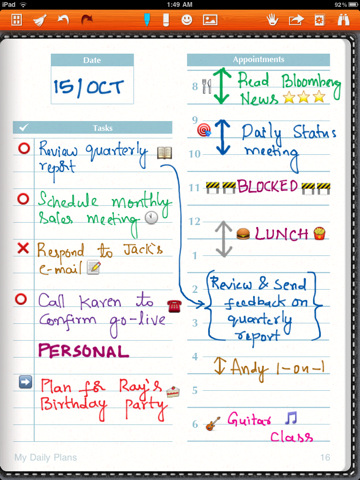 iPad
1:49 AM
92%
Date
15/OCT
Tasks
Review quarterly
report
Schedule monthly
Sales meeting
Respond to Jack's
e-mail
Call Karen to
Confirm go-live
PERSONAL
Plan for Ray's
Birthday party
My Daily Plans
Appointments
8
Read Bloomberg
News
9
Daily Status
10
meeting
11
BLOCKED
12
LUNCH
1
Review & Send
2
feedback on
quarterly
3
report
4
Andy 1-on-1
5
Guitar
6
Class
16